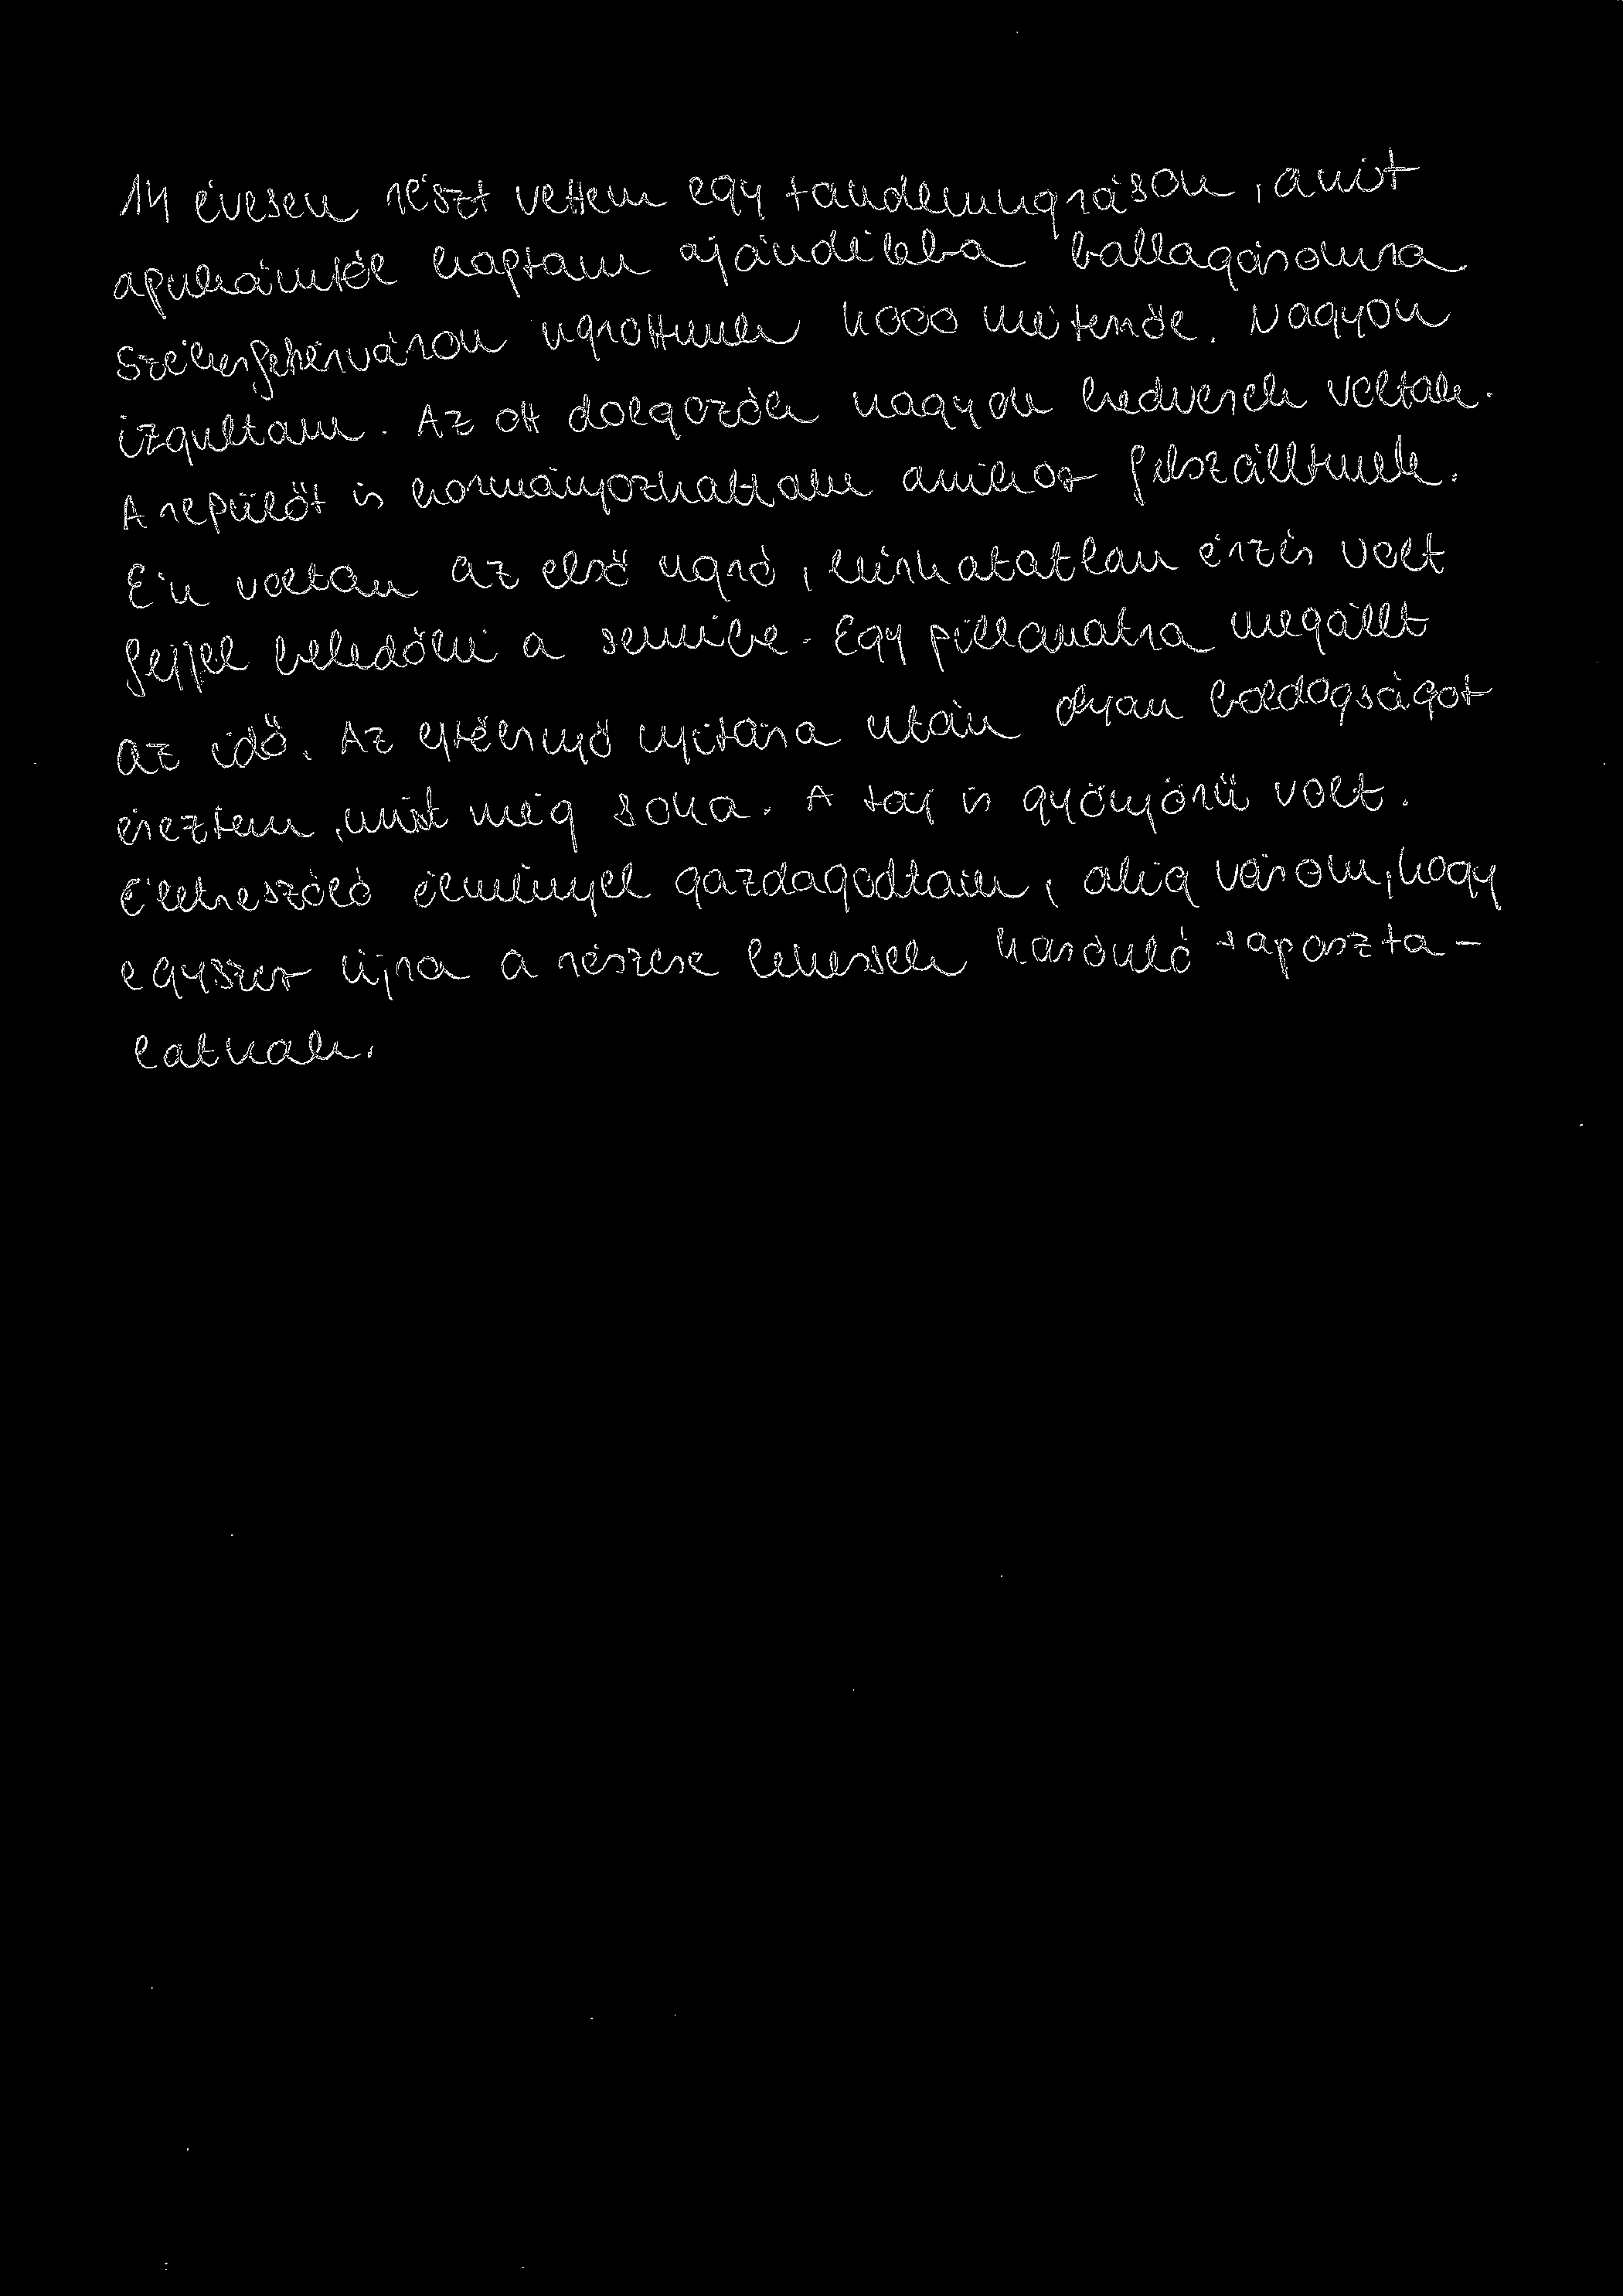 14 évesen részt vettem egy tandemugráson, amit
apukámtól kaptam ajándékba ballagásomra.
Székesfehérváron ugrottunk 4000 méterről. Nagyon
izgultam. Az ott dolgozók nagyon kedvesek voltak.
A repülőt is kormányozhattam amikor felszálltunk.
Én voltam az első ugró, leírhatatlan érzés volt
fejjel beledőlni a semmibe. Egy pillanatra megállt
az idő. Az ejtőernyő nyitása után olyan boldogságot
éreztem, mint még soha. A táj is gyönyörű volt.
Életreszóló élménnyel gazdagodtam, alig várom, hogy
egyszer újra a részese lehessek hasonló taposzta-
latnak.